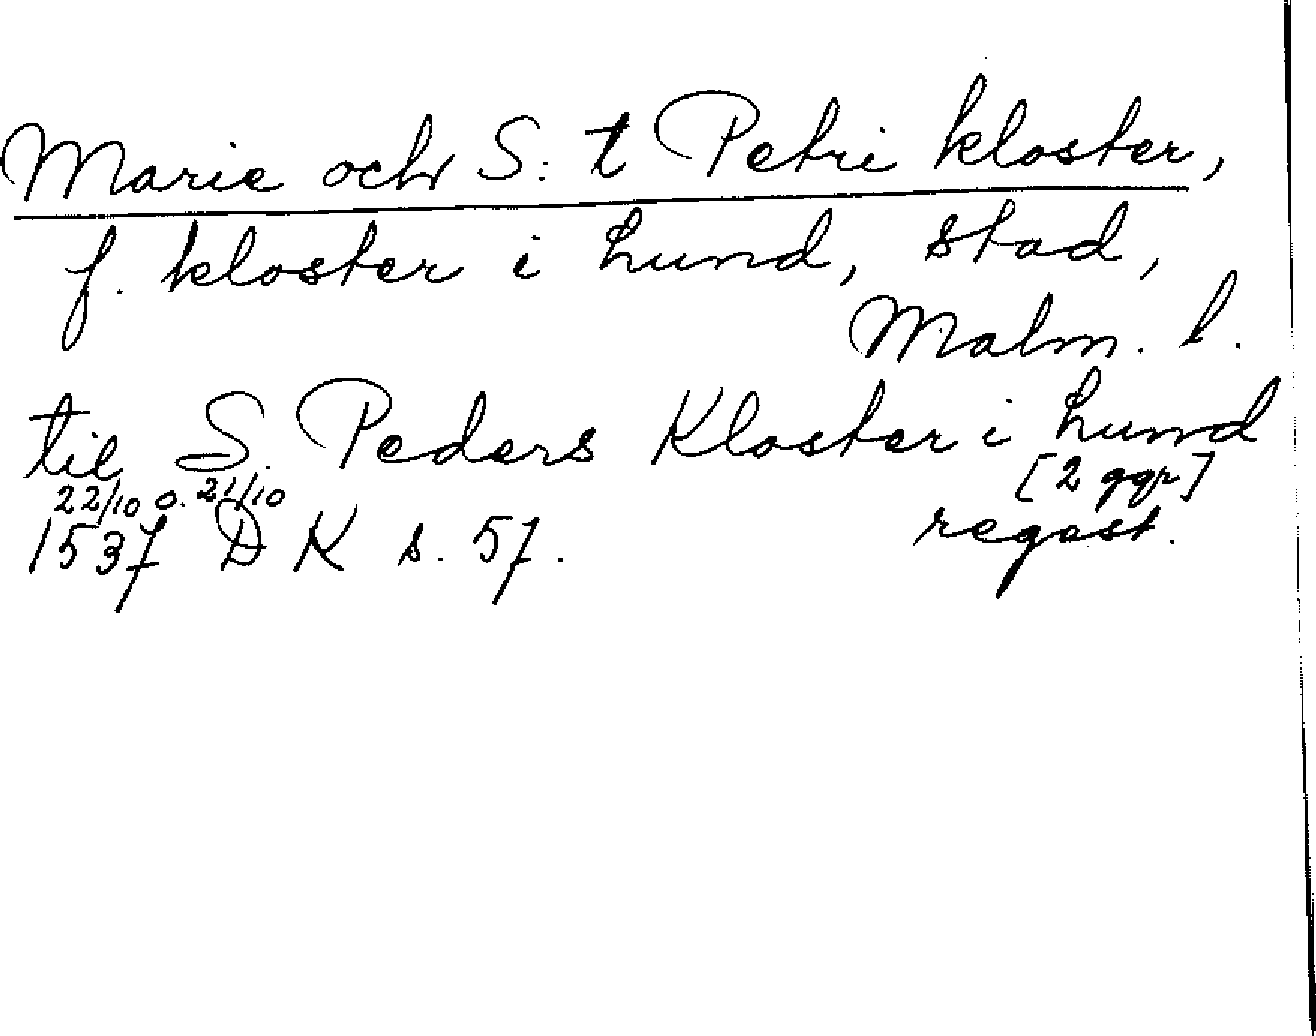 Marie och S:t Petri kloster,
f. kloster i Lund, stad,
Malm. l.
til S. Peders Kloster i Lund
[2 ggr]
22/10 o. 21/10
1537 DK s. 57.
regest.